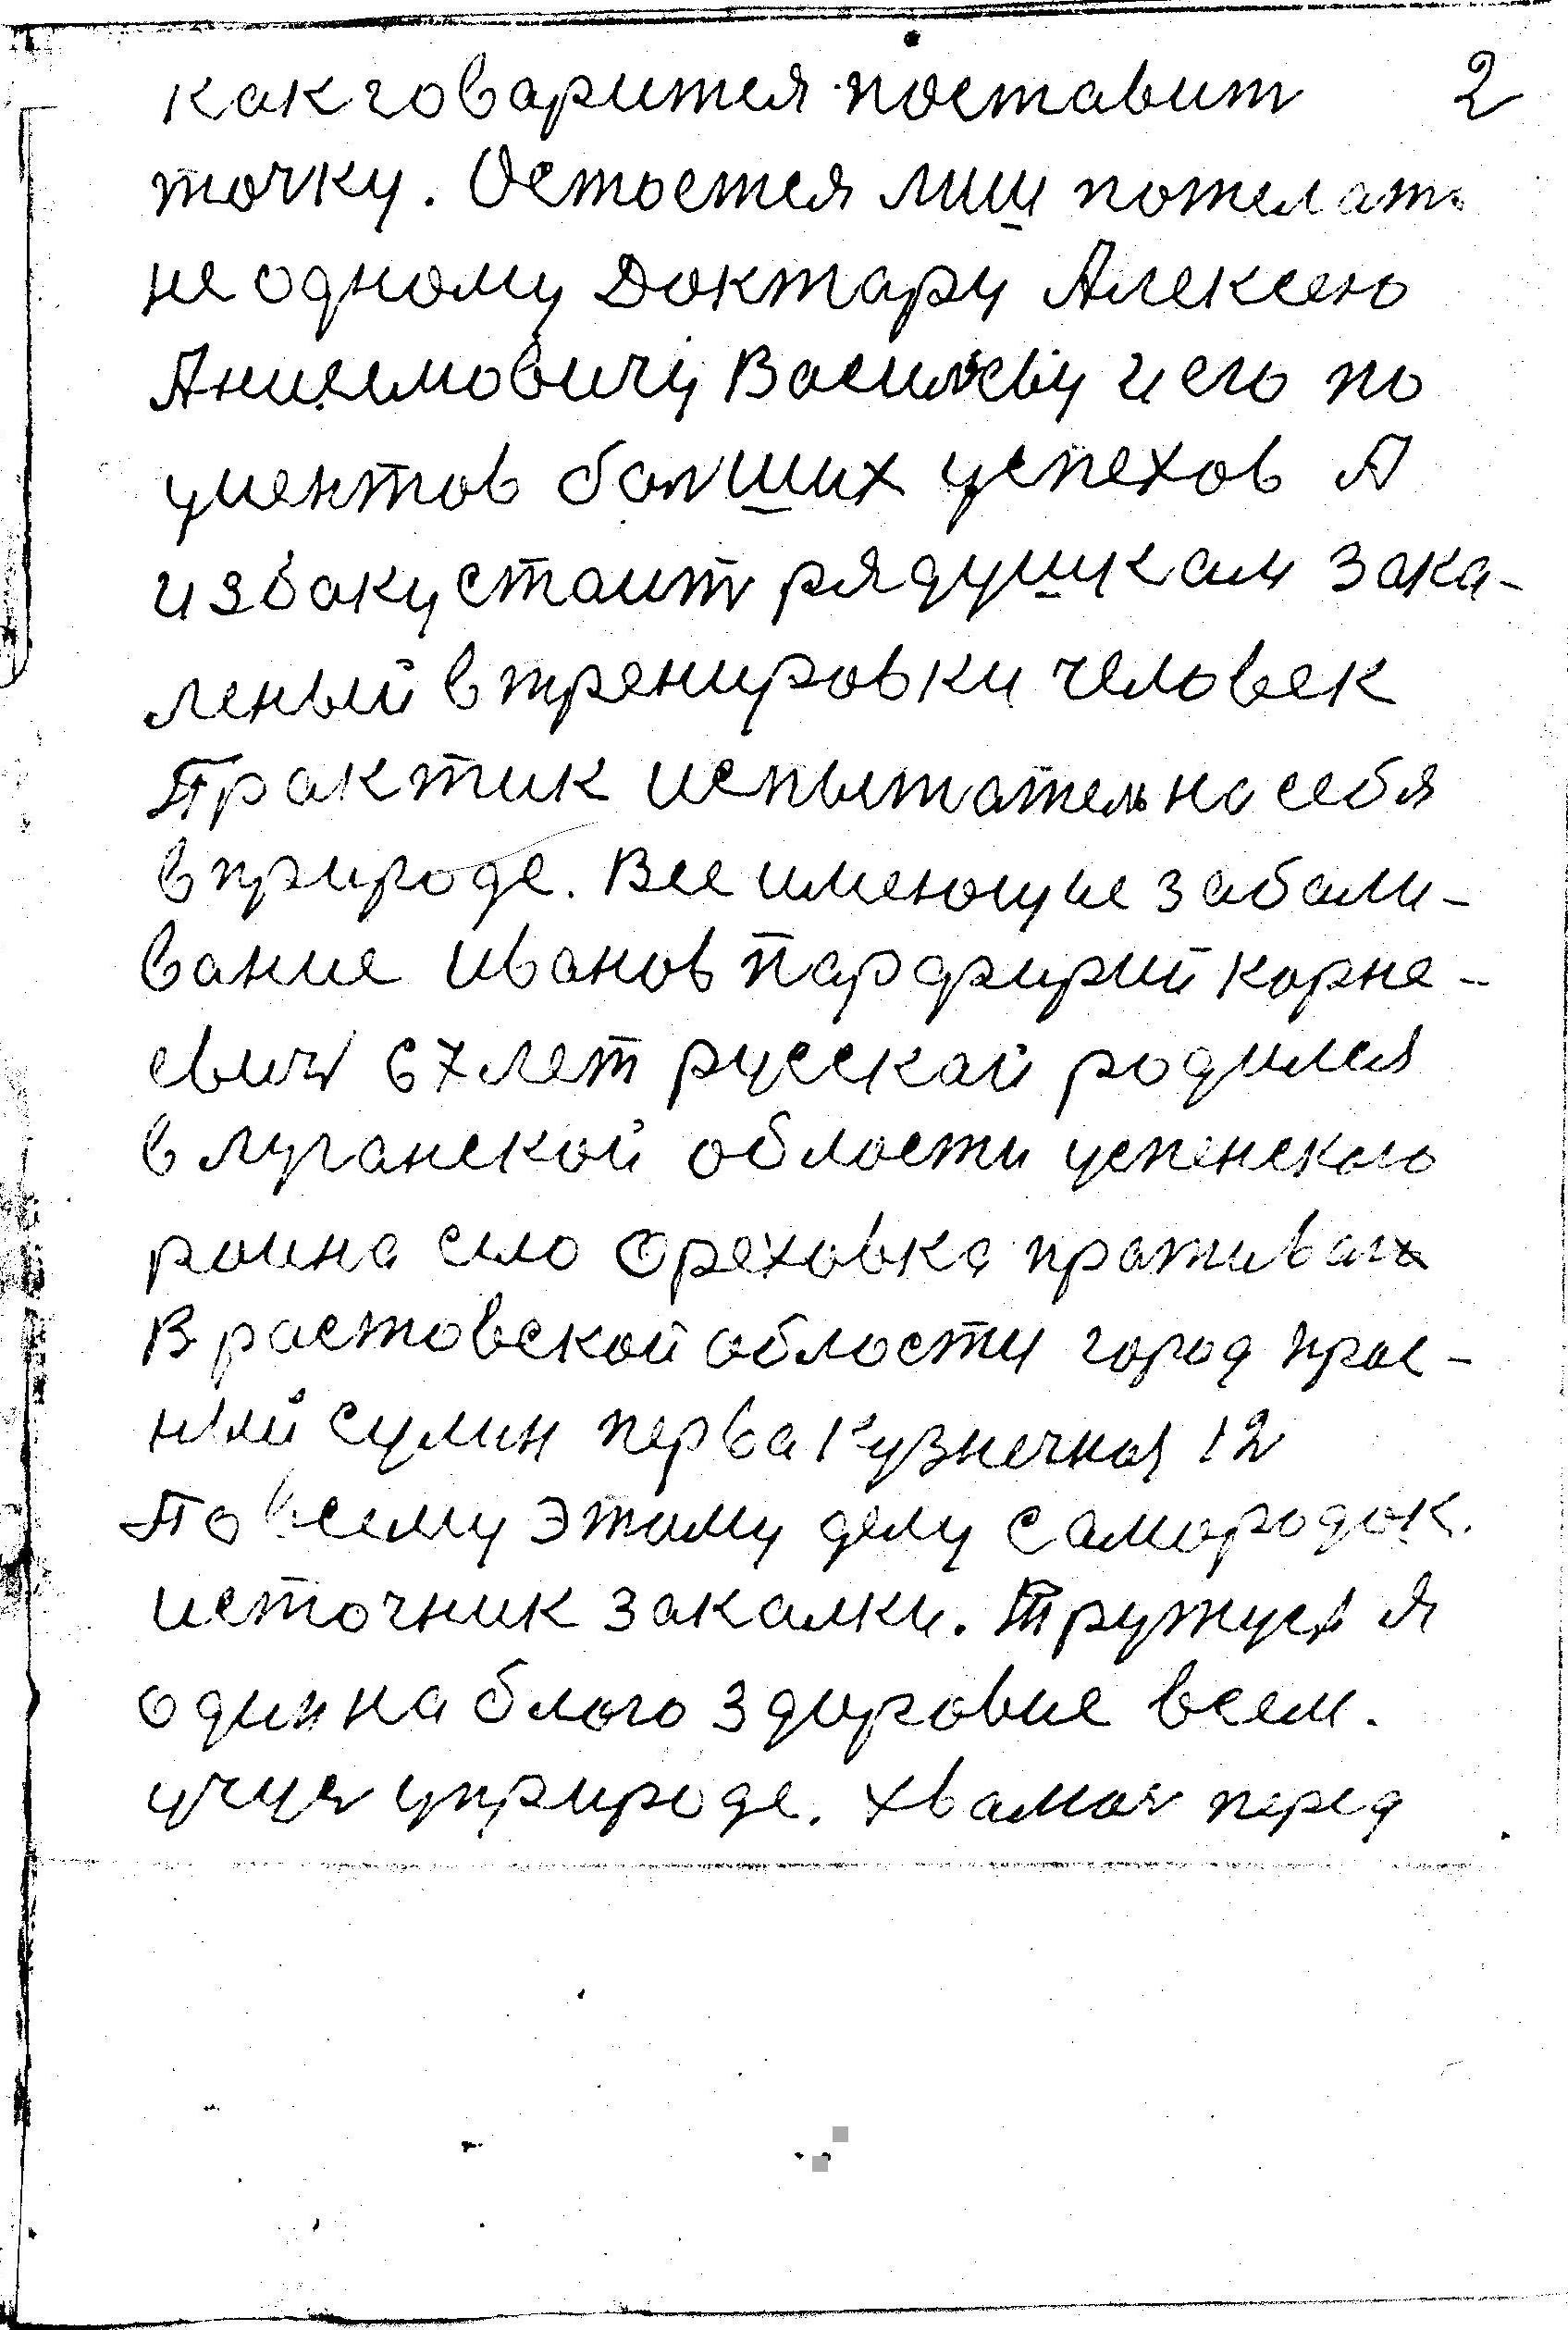 как говарится поставит 2
точку. Остоется лиш пожелать
не одному Доктару Алексею
Анисимовичу Васильеву и его по
циентов болших успехов А
избоку стоит рядушкам зака-
леный в тренировки человек
Практик испытатель на себя
в природе. Все имеющие забали-
вание Иванов Парфирий Корне-
евич 67 лет русскай родился
в луганской области успенского
роина село Ореховка праживаю
В растовской области город крас-
ный сулин перва Кузнечная 12
По всему этаму делу самородок.
источник закалки. Тружусь я
один на благо здоровие всем.
учуся у природе. хвалюся перед